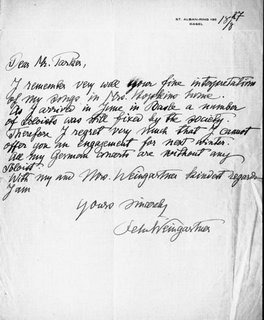 ST. ALBAN-RING 180
BASEL
Dear Mr. Tarsier,
I remember very well your fine interpretation
of my songs in Mrs. Hopkins home.
As I arrived in June in Basle a number
of soloists was still fixed by the society.
Therefore I regret very much that I cannot
offer you an engagement for next winter.
All my German concerts are without any
soloist.
With my and Mrs. Weingartner kindest regards
I am
Yours sincerely
Felix Weingartner